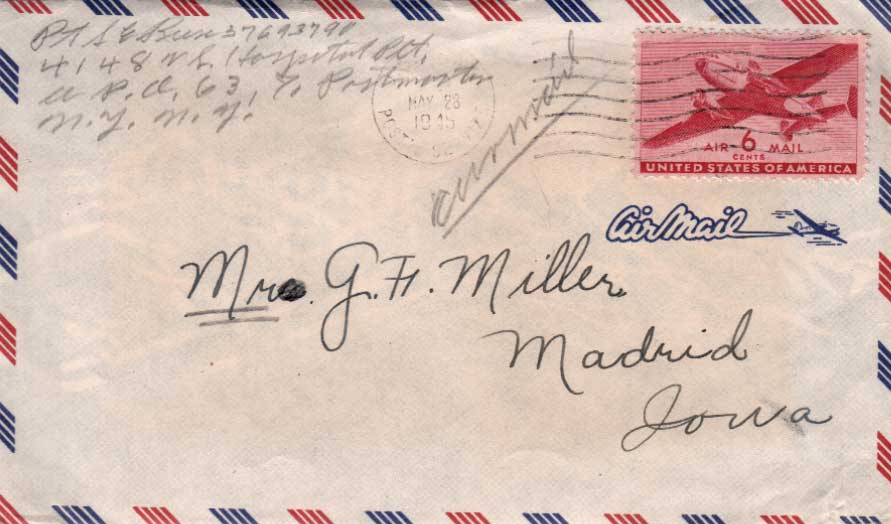 Pvt L E 37693790
4148 U.S. Hospital Plt.
A.P.O. 63, % Postmaster
N.Y. N.Y.
MAY 28
1945
POSTAL
air mail
AIR 6 MAIL
CENTS
UNITED STATES OF AMERICA
Air Mail
Mrs. G. F. Miller
Madrid
Iowa